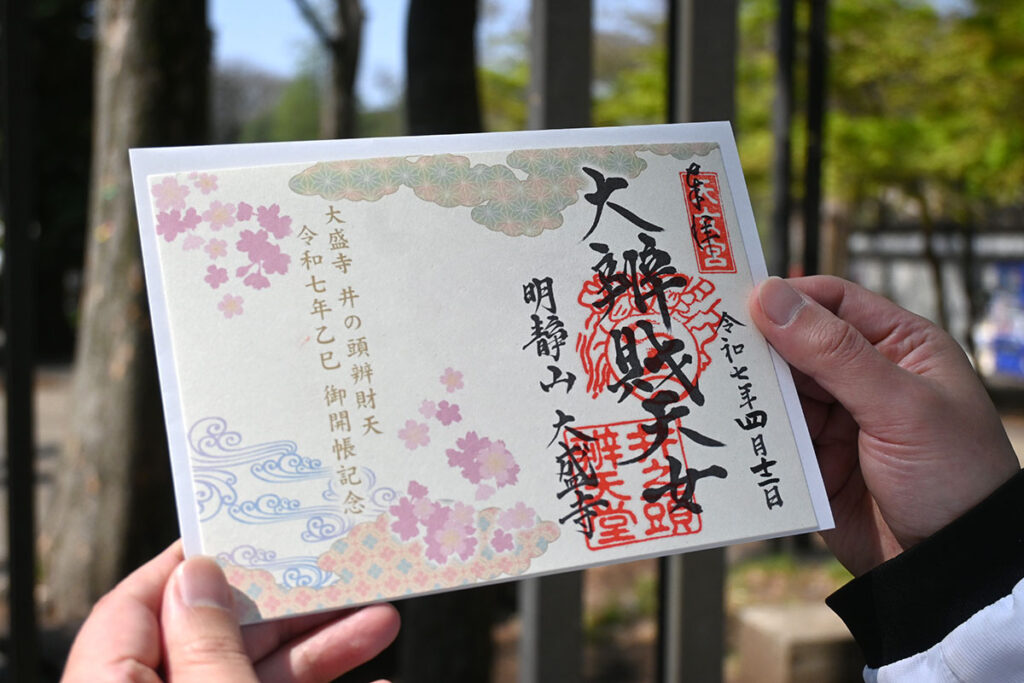 奉拝
令和七年四月十二日
大辨財天女
井之頭
辨天堂
明靜山 大盛寺
大盛寺 井の頭辨財天
令和七年乙巳 御開帳記念